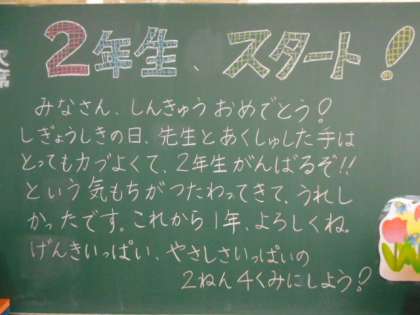 2年生、スタート!
欠席
みなさん、しんきゅうおめでとう!
しぎょうしきの日、先生とあくしゅした手は
とっても力づよくて、2年生がんばるぞ!!
という気もちがつたわってきて、うれし
かったです。これから1年、よろしくね。
げんきいっぱい、やさしさいっぱいの
2ねん4くみにしよう?